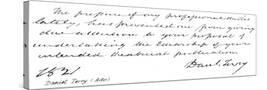 The pressure of my professional duties
lately, has prevented me from giving
due attention to your proposal of
undertaking the Editorship of your
intended theatrical publication
Danl. Terry
1821
Daniel Terry (Actor)